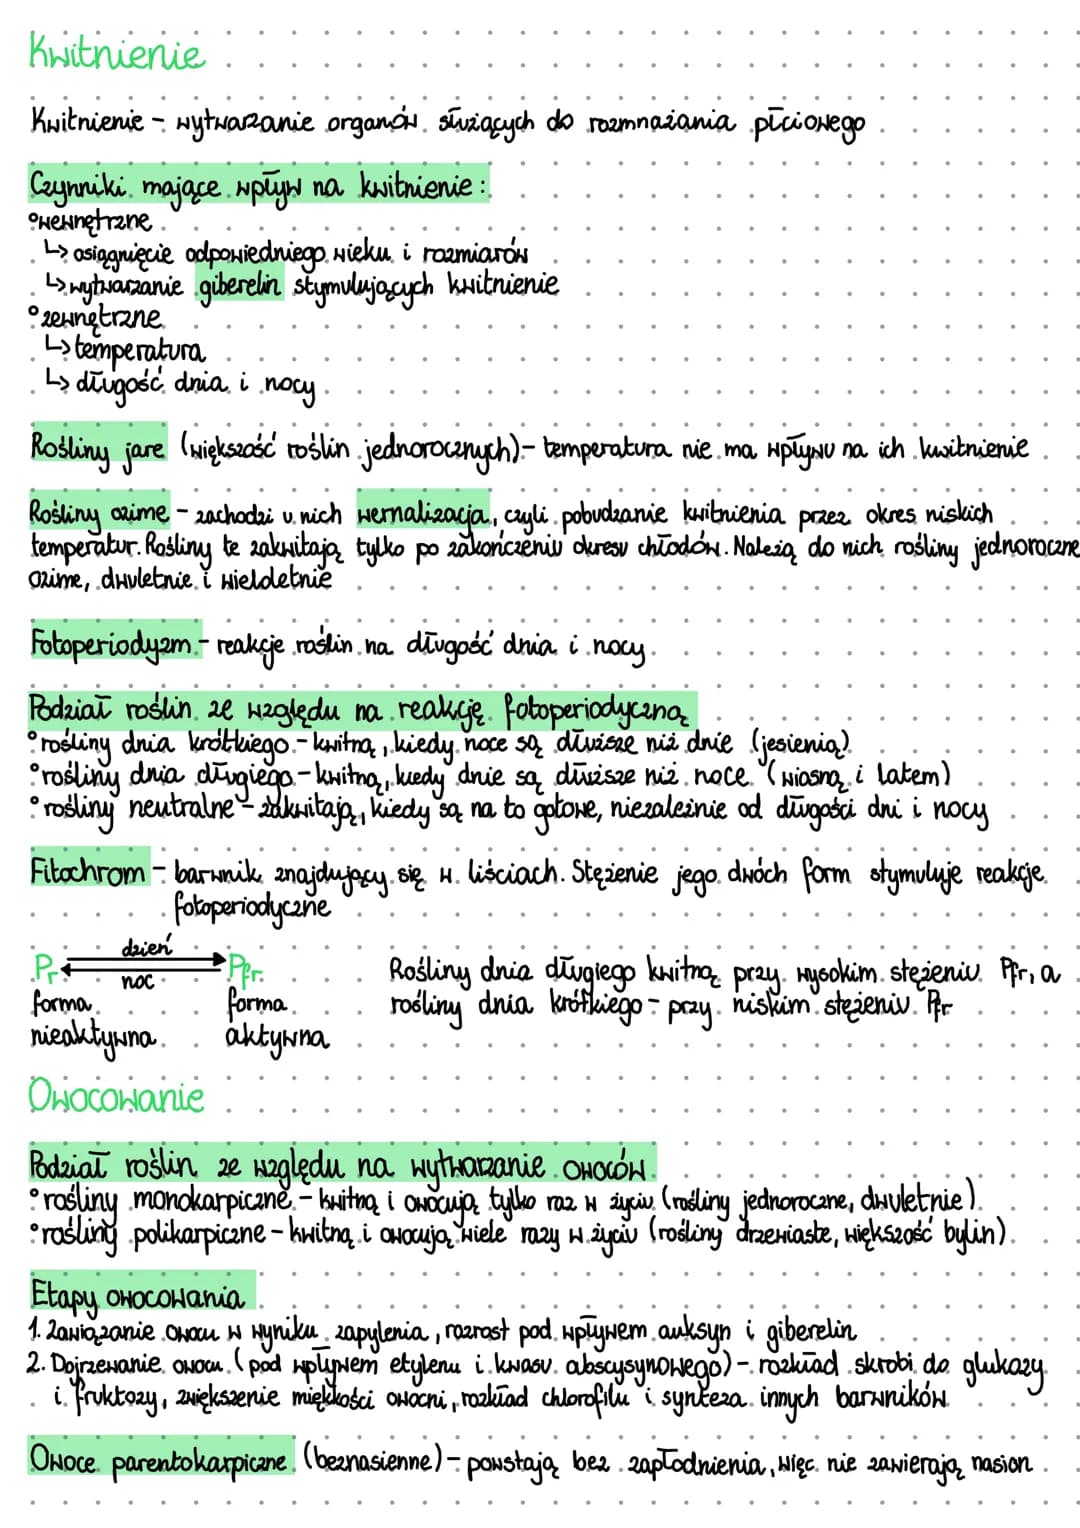 Kwitnienie
Kwitnienie - wytwarzanie organów służących do rozmnażania płciowego
Czynniki mające wpływ na kwitnienie:
°wewnętrzne
↳ osiągnięcie odpowiedniego wieku i rozmiarów
↳ wytwarzanie giberelin stymulujących kwitnienie
°zewnętrzne
↳ temperatura
↳ długość dnia i nocy
Rośliny jare (większość roślin jednorocznych) - temperatura nie ma wpływu na ich kwitnienie
Rośliny ozime - zachodzi u nich wernalizacja, czyli pobudzanie kwitnienia przez okres niskich
temperatur. Rośliny te zakwitają tylko po zakończeniu okresu chłodów. Należą do nich rośliny jednoroczne
ozime, dwuletnie i wieloletnie
Fotoperiodyzm - reakcje roślin na długość dnia i nocy
Podział roślin ze względu na reakcję fotoperiodyczną
°rośliny dnia krótkiego - kwitną, kiedy noce są dłuższe niż dnie (jesienią)
°rośliny dnia długiego - kwitną, kiedy dnie są dłuższe niż noce (wiosną i latem)
°rośliny neutralne - zakwitają, kiedy są na to gotowe, niezależnie od długości dni i nocy
Fitochrom - barwnik znajdujący się w liściach. Stężenie jego dwóch form stymuluje reakcje
fotoperiodyczne
dzień
Pr ⇄ Pfr
noc
forma nieaktywna
forma aktywna
Rośliny dnia długiego kwitną przy wysokim stężeniu Pfr, a
rośliny dnia krótkiego - przy niskim stężeniu Pfr
Owocowanie
Podział roślin ze względu na wytwarzanie owoców
°rośliny monokarpiczne - kwitną i owocują tylko raz w życiu (rośliny jednoroczne, dwuletnie)
°rośliny polikarpiczne - kwitną i owocują wiele razy w życiu (rośliny drzewiaste, większość bylin)
Etapy owocowania
1. Zawiązanie owocu w wyniku zapylenia, rozrost pod wpływem auksyn i giberelin
2. Dojrzewanie owocu (pod wpływem etylenu i kwasu abscysynowego) - rozkład skrobi do glukozy
i fruktozy, zwiększenie miękkości owocni, rozkład chlorofilu i synteza innych barwników
Owoce parentokarpiczne (beznasienne) - powstają bez zapłodnienia, więc nie zawierają nasion